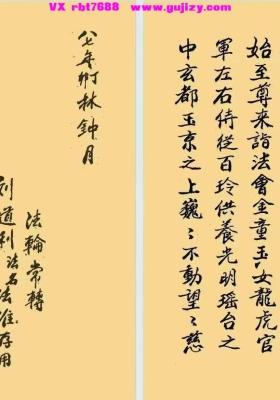 VX rbt7688 www.gujizy.com
始至尊来詣法會金童玉女龍虎官
軍左右侍從百玲供養光明瑶台之
中玄都玉京之上巍〻不動望〻慈
八七年卯林鐘月
法輪常轉
刘道利法名法准存用